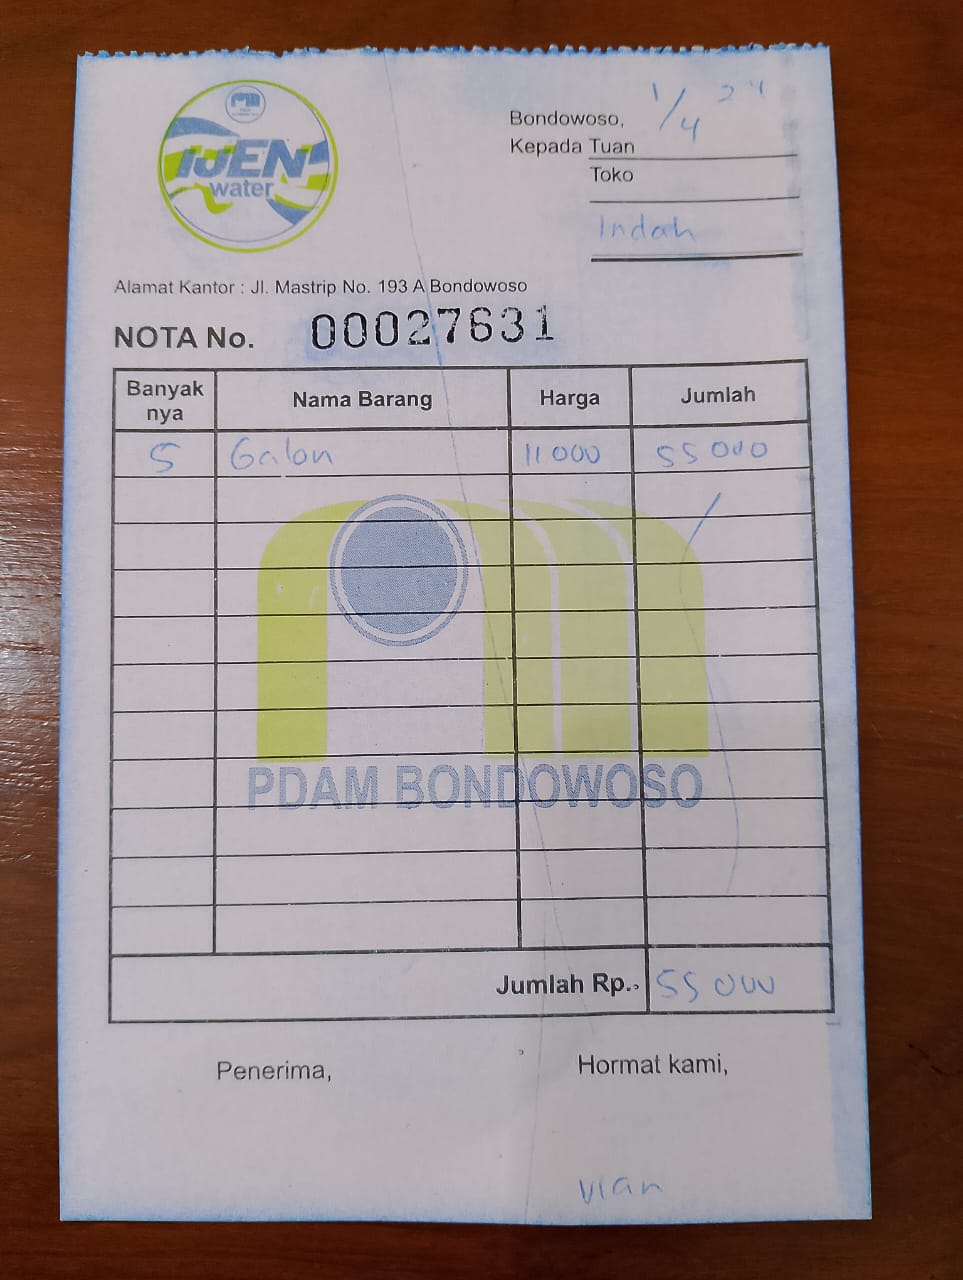 IJEN
water
Bondowoso, 1/4 24
Kepada Tuan
Toko
Indah
Alamat Kantor : Jl. Mastrip No. 193 A Bondowoso
NOTA No. 00027631
Banyak nya Nama Barang Harga Jumlah
5 Galon 11 000 55 000
PDAM BONDOWOSO
Jumlah Rp. 55 000
Penerima, Hormat kami,
Vian